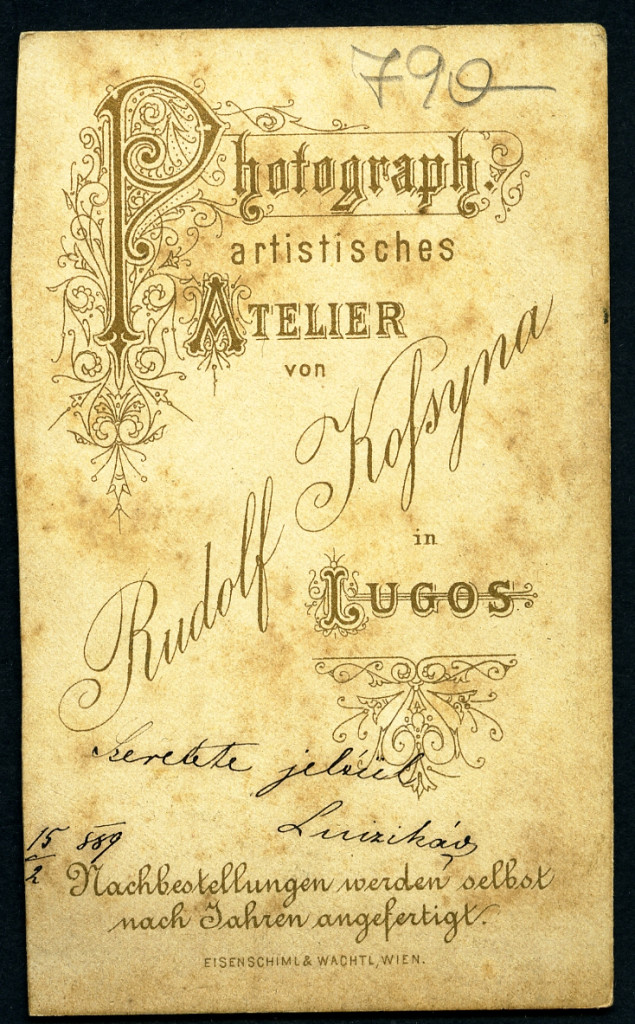 790
Photograph.
artistisches
ATELIER
von
Rudolf Koſsyna
in
LUGOS
Szeretete jeléül
Luizikád
15/2 889
Nachbestellungen werden selbst
nach Jahren angefertigt.
EISENSCHIML & WACHTL, WIEN.